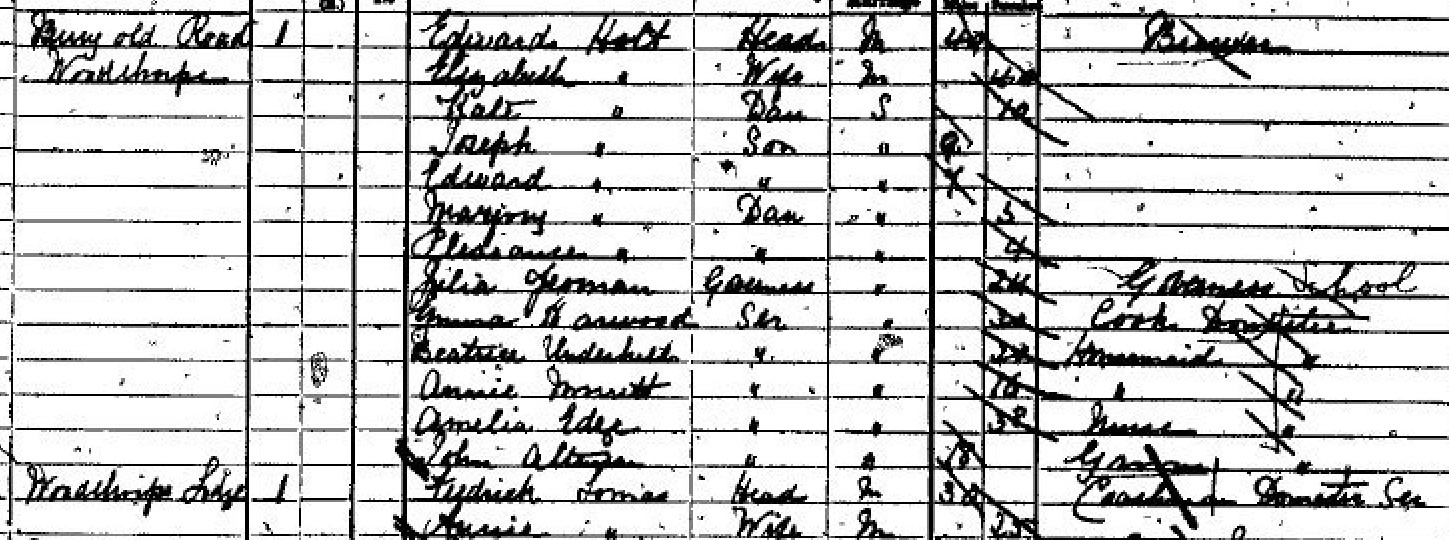 Bury old Road 1 Edward Holt Head M Brewer
Woodthorpe Elizabeth " Wife M
Kate " Dau S 10
Joseph " Son " 9
Edward " " "
Marjory " Dau " 5
Pleasance " " " 4
Julia Yeoman Governess " 24 Governess School
Emma Harwood Ser " Cook Domestic
Beatrice Underhill " " Housemaid "
Annie " " 16 " "
Amelia Edge " " 38 Nurse "
John " " 18 "
Woodthorpe Ldge 1 Fredrick Tomias Head M 30 Coachman Domestic Ser
Annie " Wife M 25